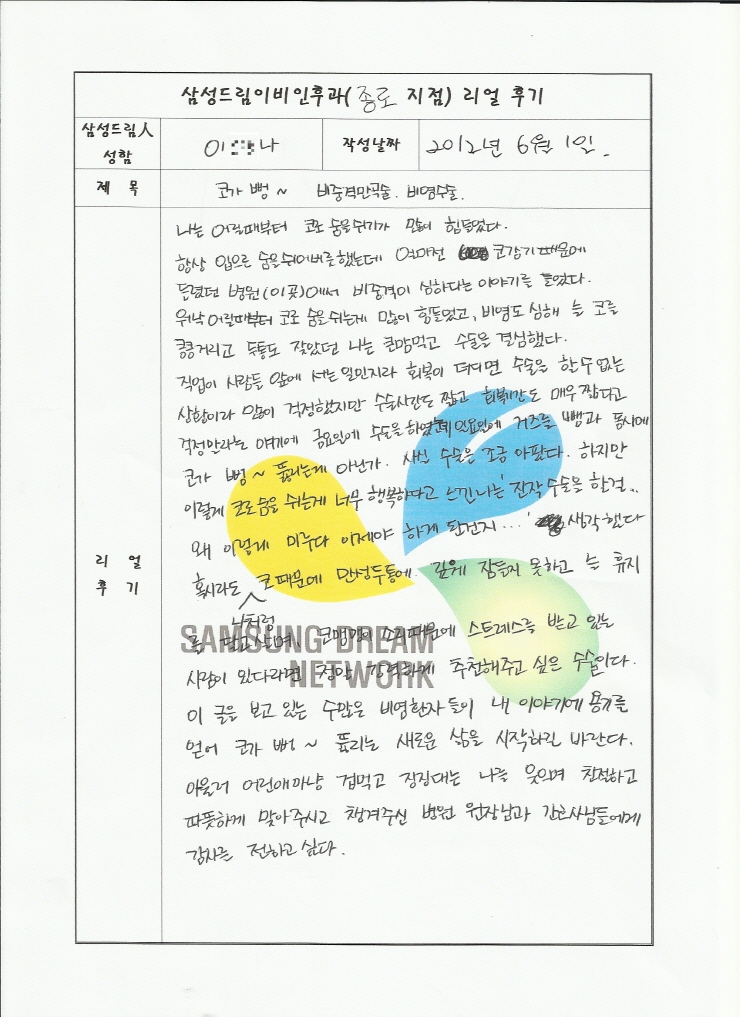 삼성드림이비인후과(종로 지점) 리얼 후기
삼성드림人 성함
이 나
작성날짜
2012년 6월 1일.
제 목
코가 뻥~ 비중격만곡술. 비염수술.
리 얼 후 기
나는 어릴때부터 코로 숨을쉬기가 많이 힘들었다.
항상 입으로 숨을쉬어버릇했는데 얼마전 코감기때문에
들렸던 병원(이곳)에서 비중격이 심하다는 이야기를 들었다.
워낙 어릴때부터 코로 숨을쉬는게 많이 힘들었고, 비염도 심해 늘 코를
킁킁거리고 두통도 잦았던 나는 큰맘먹고 수술을 결심했다.
직업이 사람들 앞에 서는 일인지라 회복이 더디면 수술을 할수 없는
상황이라 많이 걱정했지만 수술시간도 짧고 회복기간도 매우 짧다고
걱정말라는 얘기에 금요일에 수술을 하였는데 일요일에 거즈를 뺌과 동시에
코가 뻥~ 뚫리는게 아닌가. 사실 수술은 조금 아팠다. 하지만
이렇게 코로 숨을 쉬는게 너무 행복하다고 느낀 나는 '진작 수술을 한걸..
왜 이렇게 미루다 이제야 하게 된건지...' 생각했다
혹시라도 나처럼 코때문에 만성두통에. 깊게 잠들지 못하고 늘 휴지
를 달고 살며, 코맹맹이 소리때문에 스트레스를 받고 있는
사람이 있다라면 정말 강력하게 추천해주고 싶은 수술이다.
이 글을 보고 있는 수많은 비염환자 들이 내 이야기에 용기를
얻어 코가 뻥~ 뚫리는 새로운 삶을 시작하길 바란다.
아울러 어린애마냥 겁먹고 징징대는 나를 웃으며 친절하고
따뜻하게 맞아주시고 챙겨주신 병원 원장님과 간호사님들에게
감사를 전하고 싶다.
SAMSUNG DREAM
NETWORK